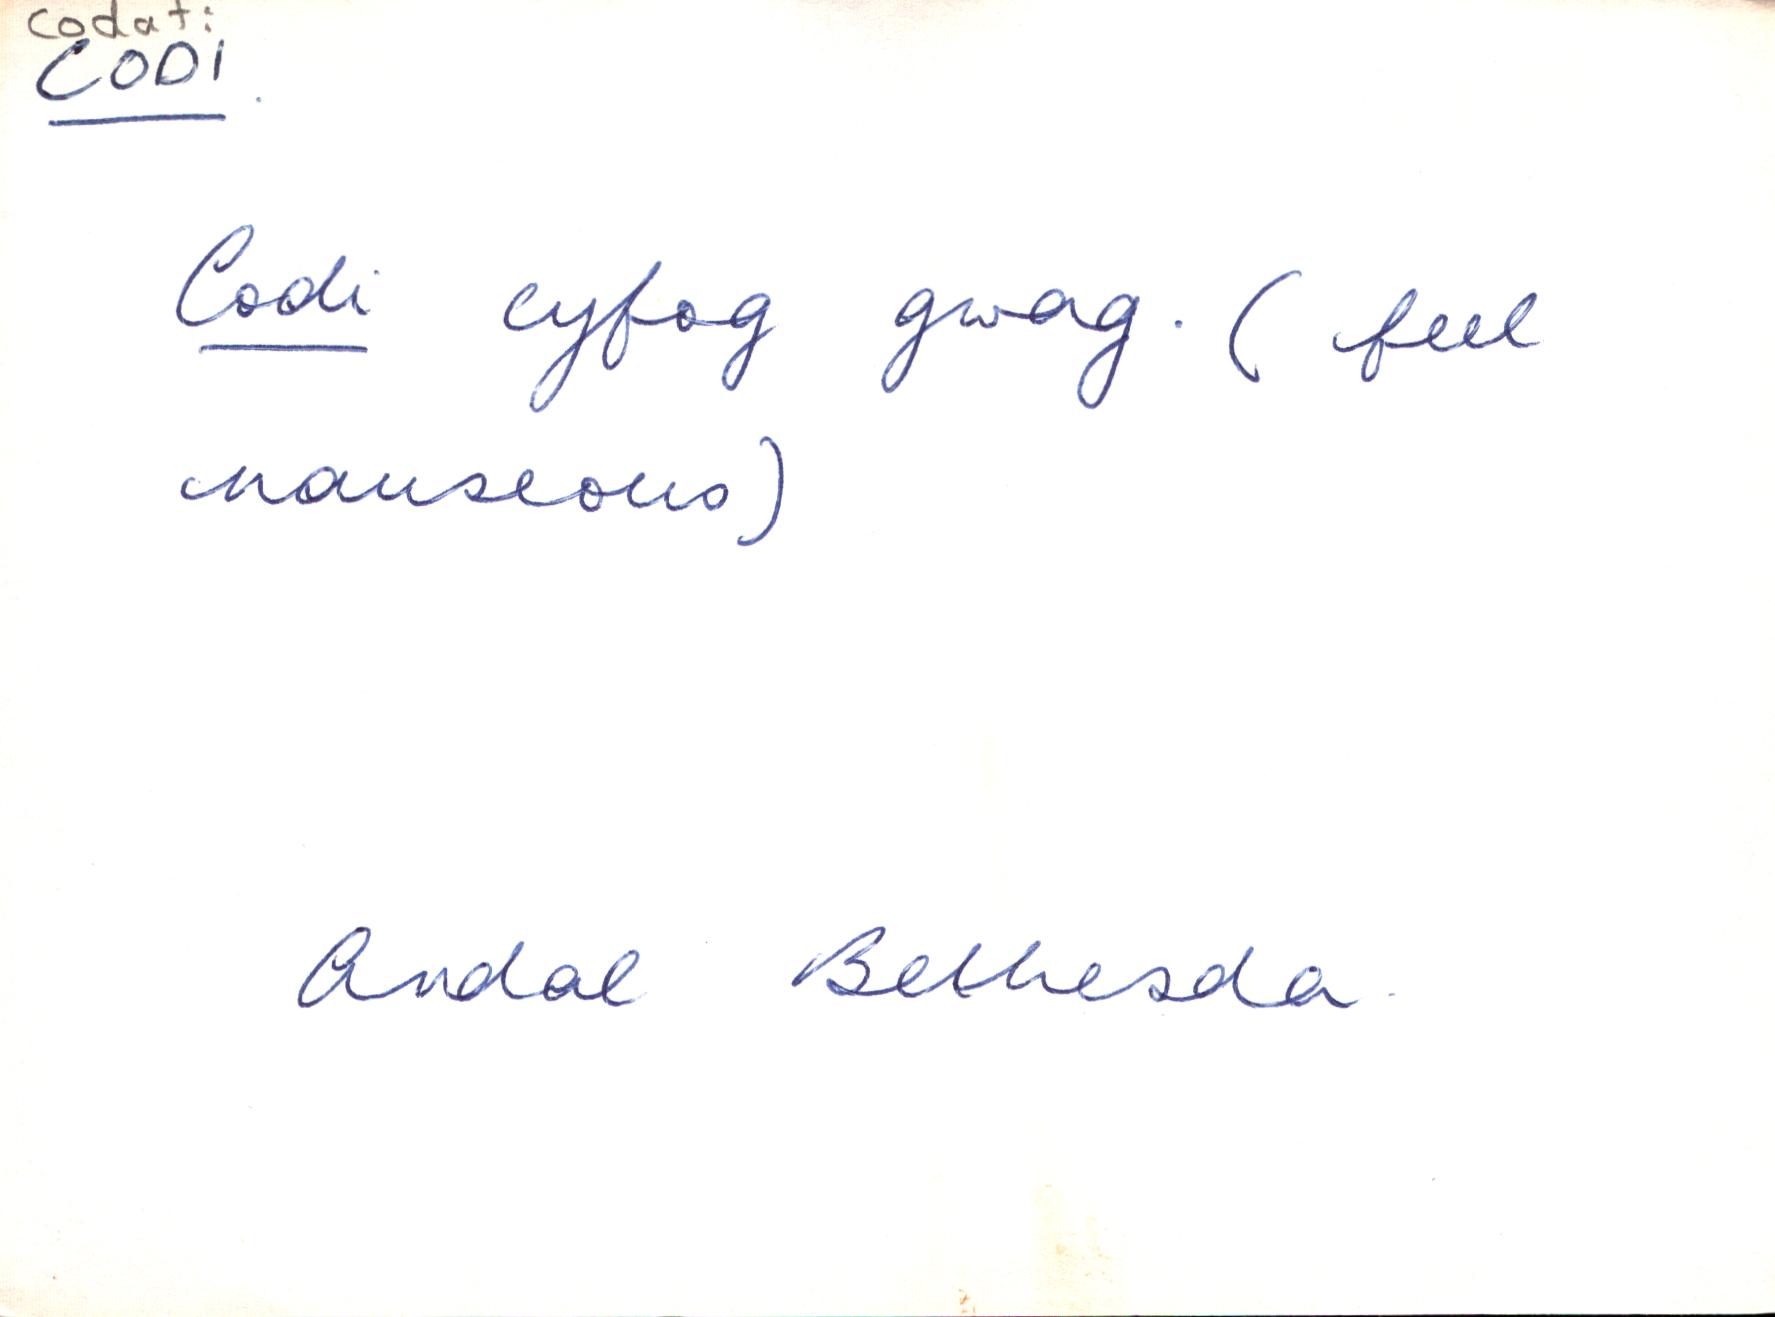 codaf:
CODI.
Codi cyfog gwag. (feel
nauseous)
Ardal Bethesda.